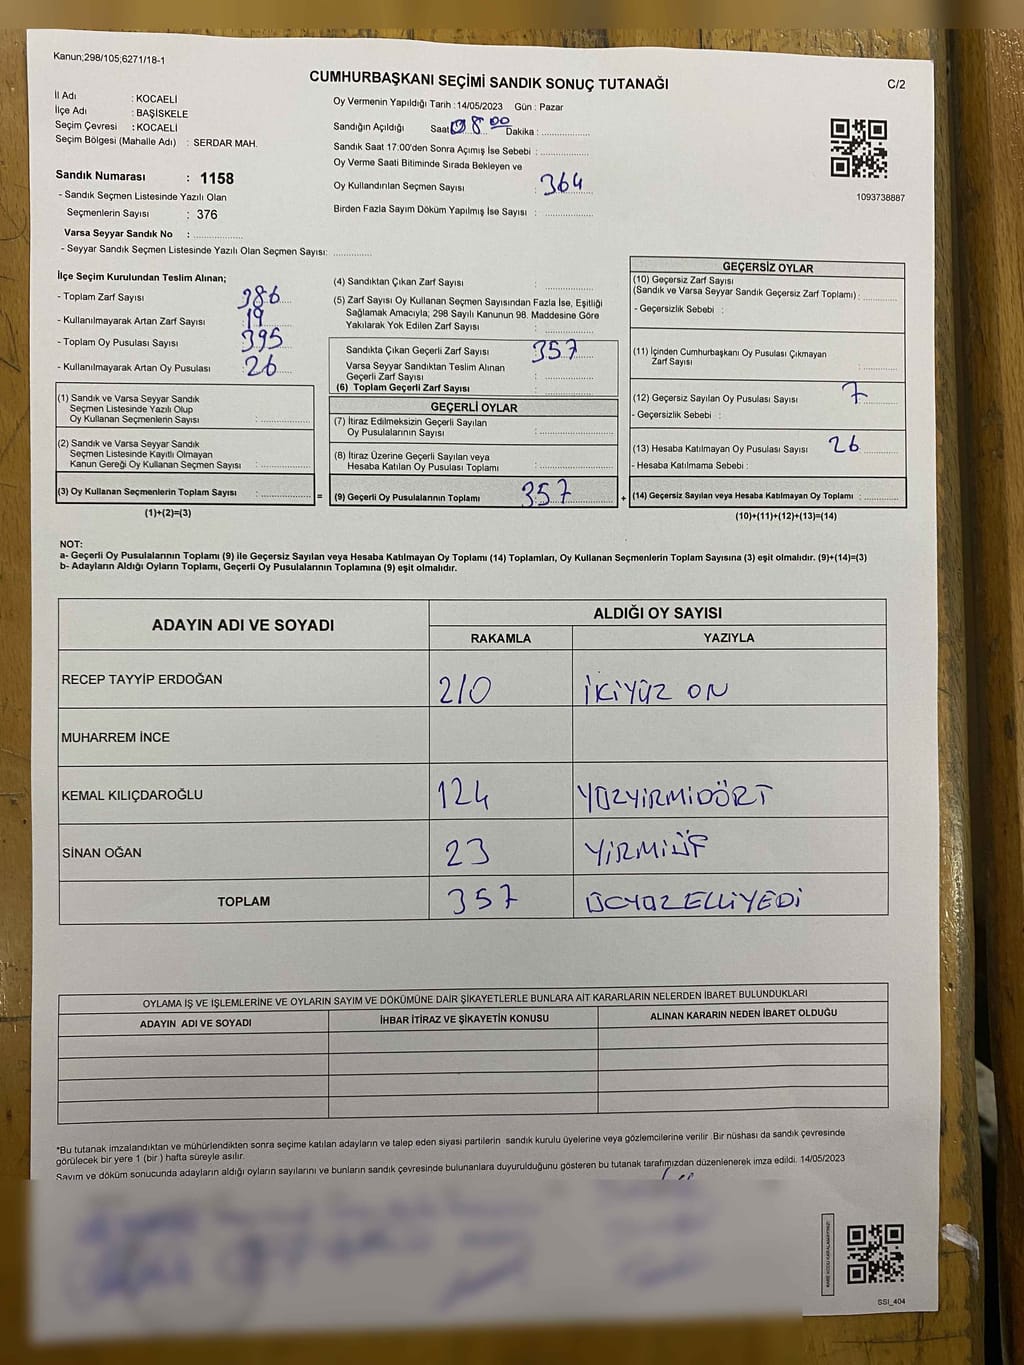 Kanun;298/105;6271/18-1
CUMHURBAŞKANI SEÇİMİ SANDIK SONUÇ TUTANAĞI
C/2
İl Adı : KOCAELİ
İlçe Adı : BAŞİSKELE
Seçim Çevresi : KOCAELİ
Seçim Bölgesi (Mahalle Adı) : SERDAR MAH.
Sandık Numarası : 1158
- Sandık Seçmen Listesinde Yazılı Olan
Seçmenlerin Sayısı : 376
Varsa Seyyar Sandık No :
- Seyyar Sandık Seçmen Listesinde Yazılı Olan Seçmen Sayısı:
Oy Vermenin Yapıldığı Tarih :14/05/2023 Gün : Pazar
Sandığın Açıldığı Saat 08 00 Dakika :
Sandık Saat 17:00'den Sonra Açımış İse Sebebi :
Oy Verme Saati Bitiminde Sırada Bekleyen ve
Oy Kullandırılan Seçmen Sayısı : 364
Birden Fazla Sayım Döküm Yapılmış İse Sayısı :
1093738887
İlçe Seçim Kurulundan Teslim Alınan;
- Toplam Zarf Sayısı : 386
- Kullanılmayarak Artan Zarf Sayısı : 19
- Toplam Oy Pusulası Sayısı : 395
- Kullanılmayarak Artan Oy Pusulası : 26
(1) Sandık ve Varsa Seyyar Sandık
Seçmen Listesinde Yazılı Olup
Oy Kullanan Seçmenlerin Sayısı :
(2) Sandık ve Varsa Seyyar Sandık
Seçmen Listesinde Kayıtlı Olmayan
Kanun Gereği Oy Kullanan Seçmen Sayısı :
(3) Oy Kullanan Seçmenlerin Toplam Sayısı : =
(1)+(2)=(3)
(4) Sandıktan Çıkan Zarf Sayısı :
(5) Zarf Sayısı Oy Kullanan Seçmen Sayısından Fazla İse, Eşitliği
Sağlamak Amacıyla; 298 Sayılı Kanunun 98. Maddesine Göre
Yakılarak Yok Edilen Zarf Sayısı :
Sandıkta Çıkan Geçerli Zarf Sayısı : 357
Varsa Seyyar Sandıktan Teslim Alınan
Geçerli Zarf Sayısı :
(6) Toplam Geçerli Zarf Sayısı :
GEÇERLİ OYLAR
(7) İtiraz Edilmeksizin Geçerli Sayılan
Oy Pusulalarının Sayısı :
(8) İtiraz Üzerine Geçerli Sayılan veya
Hesaba Katılan Oy Pusulası Toplamı :
(9) Geçerli Oy Pusulalarının Toplamı : 357 +
GEÇERSİZ OYLAR
(10) Geçersiz Zarf Sayısı
(Sandık ve Varsa Seyyar Sandık Geçersiz Zarf Toplamı) :
- Geçersizlik Sebebi :
(11) İçinden Cumhurbaşkanı Oy Pusulası Çıkmayan
Zarf Sayısı :
(12) Geçersiz Sayılan Oy Pusulası Sayısı : 7
- Geçersizlik Sebebi :
(13) Hesaba Katılmayan Oy Pusulası Sayısı : 26
- Hesaba Katılmama Sebebi :
(14) Geçersiz Sayılan veya Hesaba Katılmayan Oy Toplamı :
(10)+(11)+(12)+(13)=(14)
NOT:
a- Geçerli Oy Pusulalarının Toplamı (9) ile Geçersiz Sayılan veya Hesaba Katılmayan Oy Toplamı (14) Toplamları, Oy Kullanan Seçmenlerin Toplam Sayısına (3) eşit olmalıdır. (9)+(14)=(3)
b- Adayların Aldığı Oyların Toplamı, Geçerli Oy Pusulalarının Toplamına (9) eşit olmalıdır.
ADAYIN ADI VE SOYADI ALDIĞI OY SAYISI
RAKAMLA YAZIYLA
RECEP TAYYİP ERDOĞAN 210 İKİYÜZ ON
MUHARREM İNCE
KEMAL KILIÇDAROĞLU 124 YÜZYİRMİDÖRT
SİNAN OĞAN 23 YİRMİÜÇ
TOPLAM 357 ÜÇYÜZELLİYEDİ
OYLAMA İŞ VE İŞLEMLERİNE VE OYLARIN SAYIM VE DÖKÜMÜNE DAİR ŞİKAYETLERLE BUNLARA AİT KARARLARIN NELERDEN İBARET BULUNDUKLARI
ADAYIN ADI VE SOYADI İHBAR İTİRAZ VE ŞİKAYETİN KONUSU ALINAN KARARIN NEDEN İBARET OLDUĞU
*Bu tutanak imzalandıktan ve mühürlendikten sonra seçime katılan adayların ve talep eden siyasi partilerin sandık kurulu üyelerine veya gözlemcilerine verilir .Bir nüshası da sandık çevresinde
görülecek bir yere 1 (bir ) hafta süreyle asılır.
Sayım ve döküm sonucunda adayların aldığı oyların sayılarını ve bunların sandık çevresinde bulunanlara duyurulduğunu gösteren bu tutanak tarafımızdan düzenlenerek imza edildi. 14/05/2023
KARE KODU KARALAMAYINIZ!
SSI_404